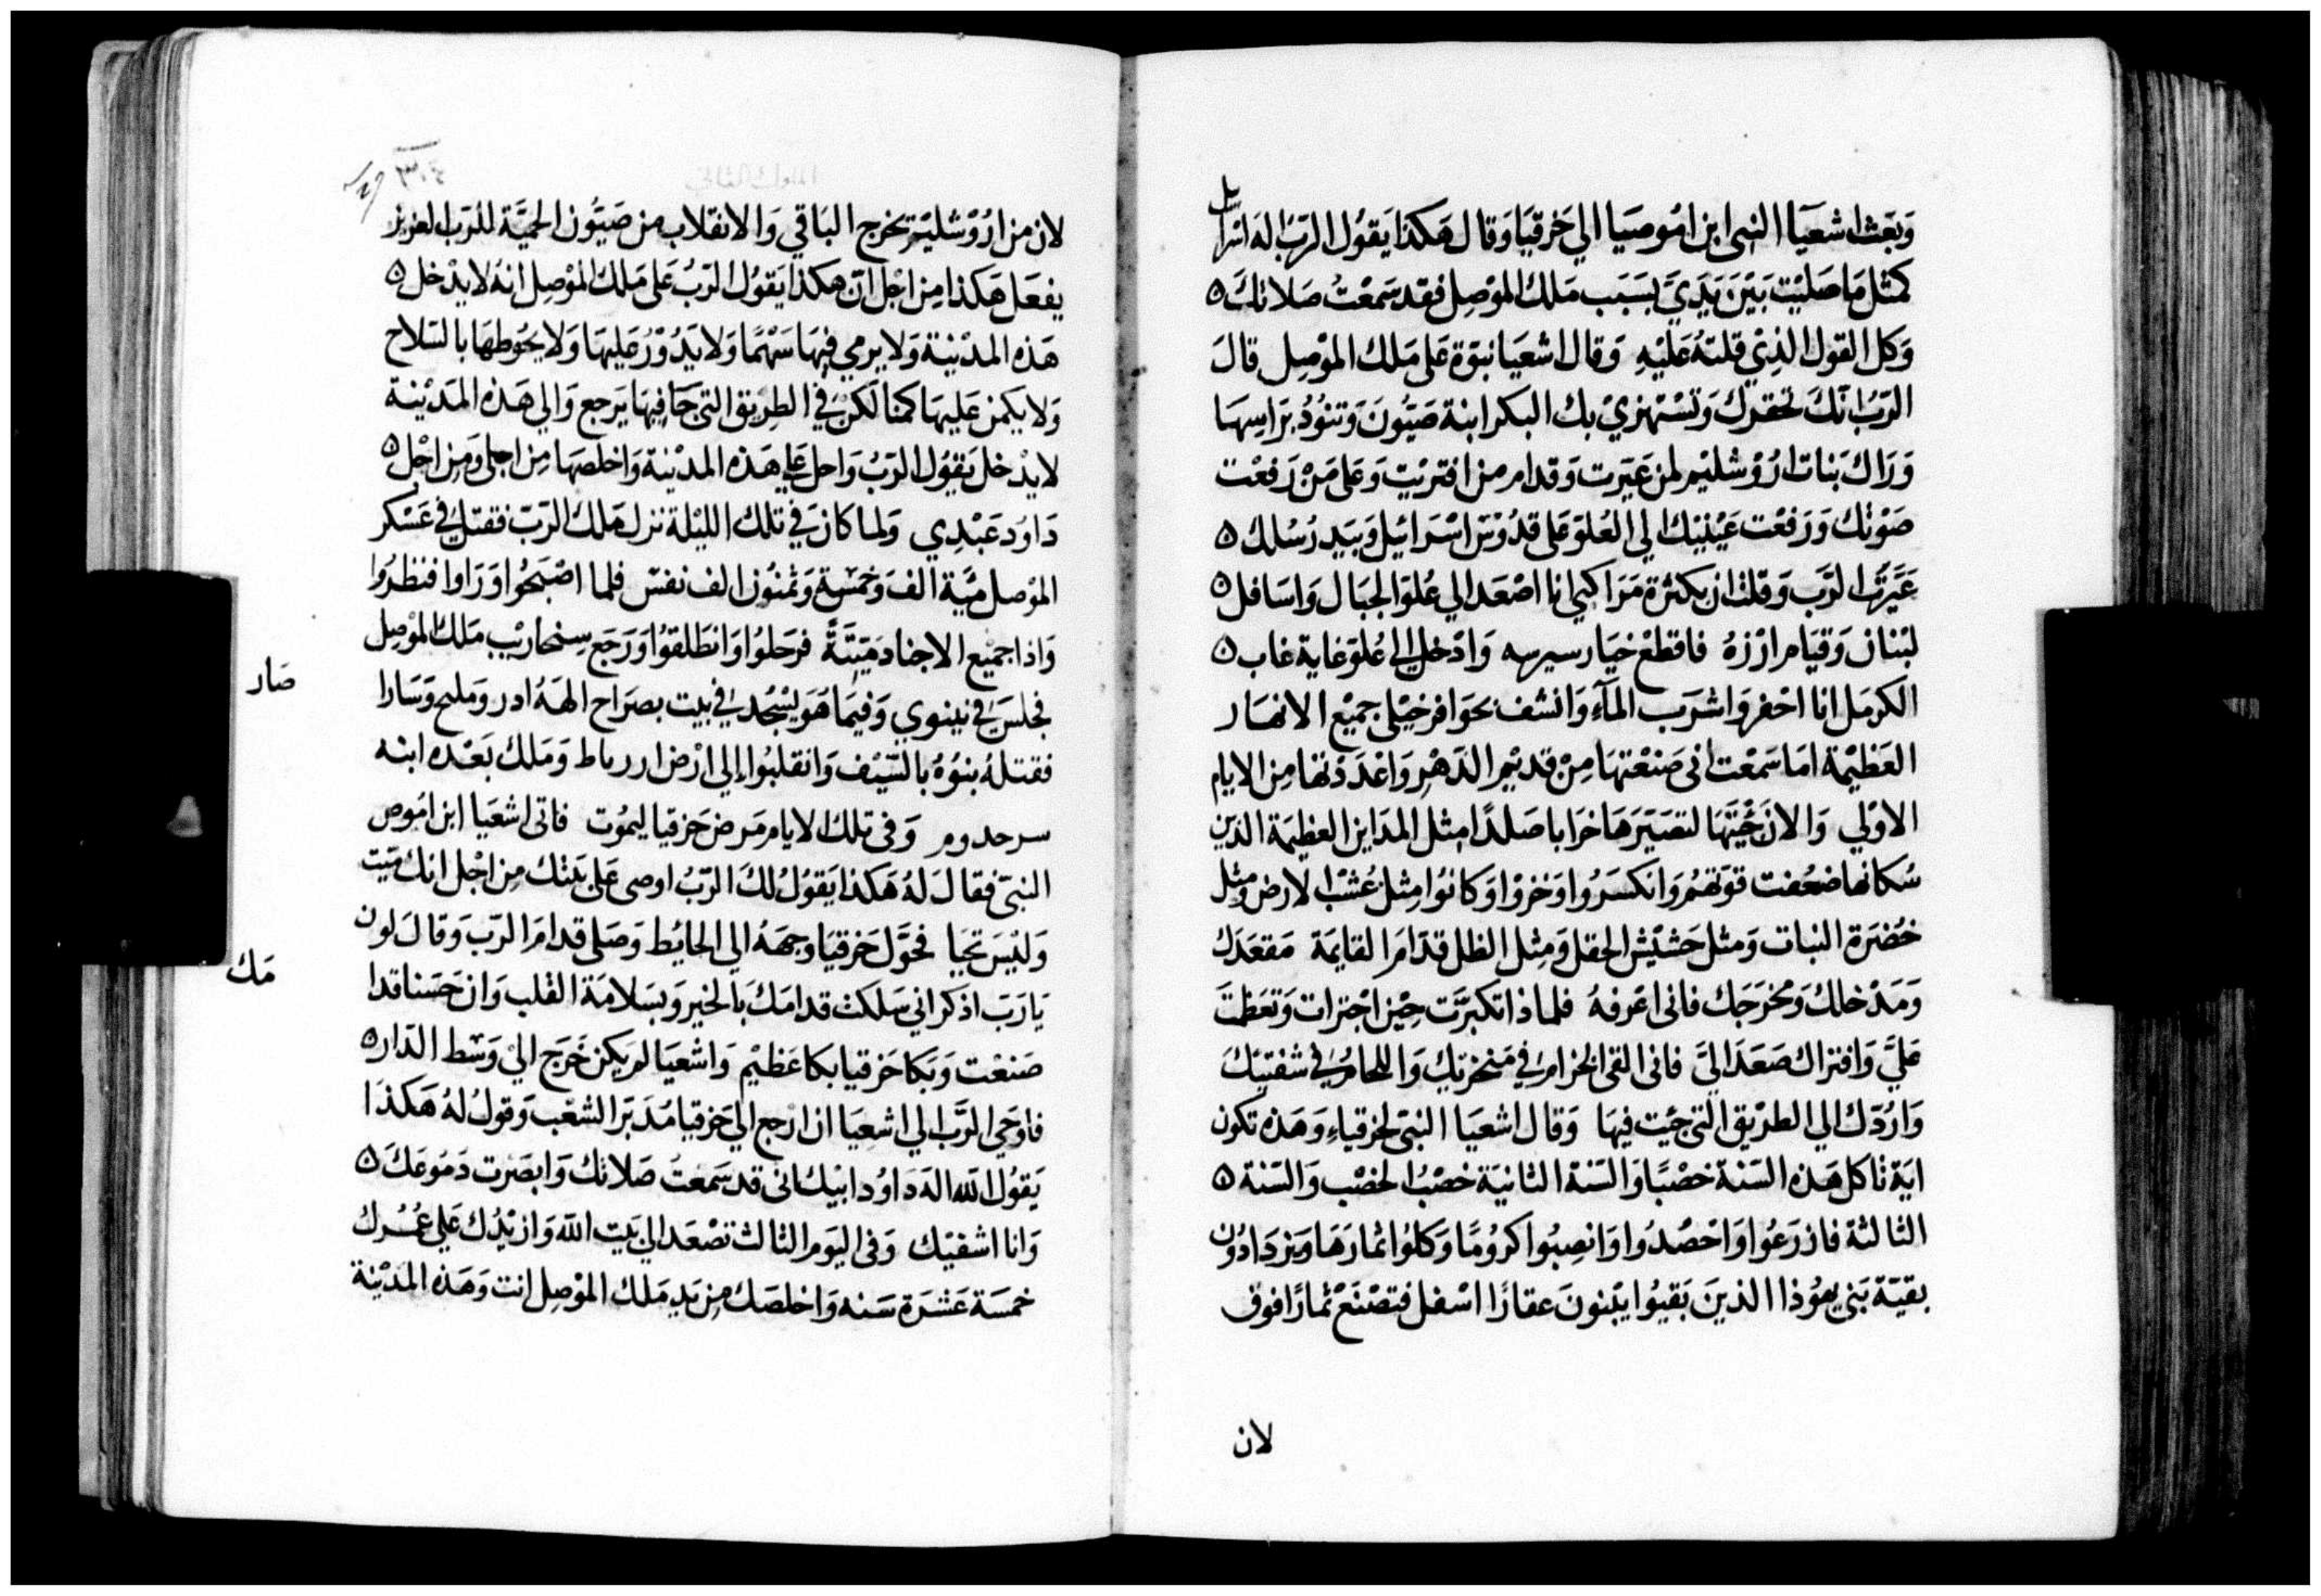 وَبَعَث اشعيَآ النبى ابن امُوصيَا الي حَزقيَا وَقال هَكذا يَقوُل الرَبّ الهَ اسرايل
كمثل مَا صَليْت بَيْن يَدَيَّ بسَبَب مَلك الموْصِل فقد سَمعْتُ صَلاتكَ ۵
وَكل القول الذِيْ قلتهُ عَليْهِ وَقال اشعيَا نبوّة عَلى مَلك الموْصِل قالَ
الرَبّ انّكَ تحقرك وَتسْتهزيْ بك البكر ابنة صَيّونَ وَتنوُدُ برَاسِهَا
وَرَاك بَنات ارُوْشليْم لمن عَيّرت وَقدام من افتريْت وَعَلى مَنْ رَفعْت
صَوْتك وَرَفعْت عَيْنيْك الي العُلوّ عَلى قدُوْس اسْرَائيْل وَبيَد رُسُلك ۵
عَيَّرت الرَّب وَقلت ان بكثرة مَرَاكبي انا اصْعَد الي عُلوّ الجبَال وَاسَافل ۵
لبْنان وَقيَام ارْزهُ فاقطعْ خيَار سيرسه وَادْخل الي عُلوّ غاية غاب ۵
الكرمَل انا احْفر وَاشرَب المآء وَانشف بحَوَافر خيْلى جميْع الانهَار
العَظيْمة امَا سَمعْت انى صَنعْتهَا مِنْ قديْم الدّهْرِ وَاعْدَدْتها مِن الايام
الاوْلي وَالان جَبْتهَا لتصَيّرَهَا خرَابا صَلدًا مثل المدَاين العظيمَة الذين
سُكانها ضعُفت قوّتهمُ وَانكسَرُوا وَخزوْا وَكانوُا مِثل عُشبْ الارض وَمثل
خُضرَة النبات وَمثل حَشيْش الحقل وَمِثل الظل قدّامَ القايمَة مَقعَدَك
وَمَدْخلك وَمخرَجَك فانى اعَرفهُ فلماذا تكبرَّت حِيْن اجْترات وَتعَظمتَ
عَليَّ وَافتراك صَعَدَ اليَّ فانى القى الخزام في مَنخزتيك وَاللحام في شفتيْكَ
وَارُدّك الي الطريْق التى جئت فيهَا وَقال اشعيَا النبى لحزقياءِ وَهَذه تكون
ايَة تاكل هَذه السَنة خصْبًا وَالسَنة الثانيَة خصْبُ الخصْب وَالسَنة ۵
الثالثة فازرَعُوا وَاحْصُدُوا وَانصِبُوا كرُومًا وَكلوُا ثمارَهَا وَيزدَادُون
بقيّة بَني يهوُذا الذينَ بَقيوُا يبْنونَ عقارًا اسْفل فتصْنَعْ ثمارًا فوق
لان
لان من ارُوْشليْم يخرج البَاقي وَالانقلاب من صَيّون الحميَّة للرَب العزيز
يفعَل هَكذا مِن اجْل انّ هكذا يَقوُل الرَبُ عَلى مَلك الموْصِل انهُ لا يدْخل ۵
هَذه المدْينة وَلا يرمي فيهَا سَهْمًا وَلا يَدُوْرُ عَليهَا وَلا يحوُطهَا بالسَلاح
وَلا يكمن عَليهَا كمنا لكنْ في الطريْق التى جَا فيهَا يَرجع وَالي هَذه المَدْينة
لا يدْخل يَقوُل الرَبُ وَاحل عَلي هَذه المدْينة وَاخلصَهَا مِن اجلى وَمِن اجْل ۵
دَاوُد عَبْدِي وَلما كان في تلك الليْلة نزل مَلك الرَبّ فقتل في عَسْكر
الموْصل ميَّة الف وَخمسْة وَثمنوُن الف نفسْ فلما اصْبَحُوا وَرَاوا فنظرُوا
وَاذا جميْع الاجنادِ مَيتَةً فرَحلوُا وَانطَلقوُا وَرَجَع سِنحاريْب مَلك الموْصِل
صَار
فجلسَ في نينوي وَفيمَا هوَ يسْجُد في بيت بصرَاح الههُ ادر وَملح وَسَارا
فقتلهُ بنوُهُ بالسّيْف وَانقلبُوا الي ارْض اررماط وَمَلك بَعْده ابنه
سرحدوم وَفى تلك الايام مَرض حَزقيا ليموُت فاتى اشعَيا ابن امُوص
النبىّ فقالَ لهُ هَكذا يَقوُلُ لكَ الرَبّ اوصى عَلى بَيتك مِن اجْل انك مَيّت
وَليْسَ تحْيَا فحَوَّل حَزقيَا وَجههُ الي الحايْط وَصَلى قدامَ الرَبّ وَقالَ لون
مَك
يَارَبّ اذكر اني سَلكت قدامَكَ بَالخير وَبسَلامَة القلب وَان حَسَنا قدا
صَنعْت وَبَكا حَزقيا بكا عَظيْم وَاشعيَا لم يَكن خَرج اليْ وَسْط الدّار ۵
فاوحَي الرَّب الي اشعيَا ان ارْجع الي حَزقيا مُدَبرَ الشعْب وَقولُ لهُ هَكذَا
يَقوُل الله الهَ دَاوُد ابيْك انى قد سَمعتُ صَلاتك وَابصَرت دَموُعَكَ ۵
وَانا اشفيْك وَفى اليَوم الثالث تصْعَد الي بَيت الله وَازيْدُك عَلي عُمُرك
خمسَة عَشرَة سَنه وَاخلصَك مِن يَدِ مَلك الموْصِل انت وَهَذه المدْينة